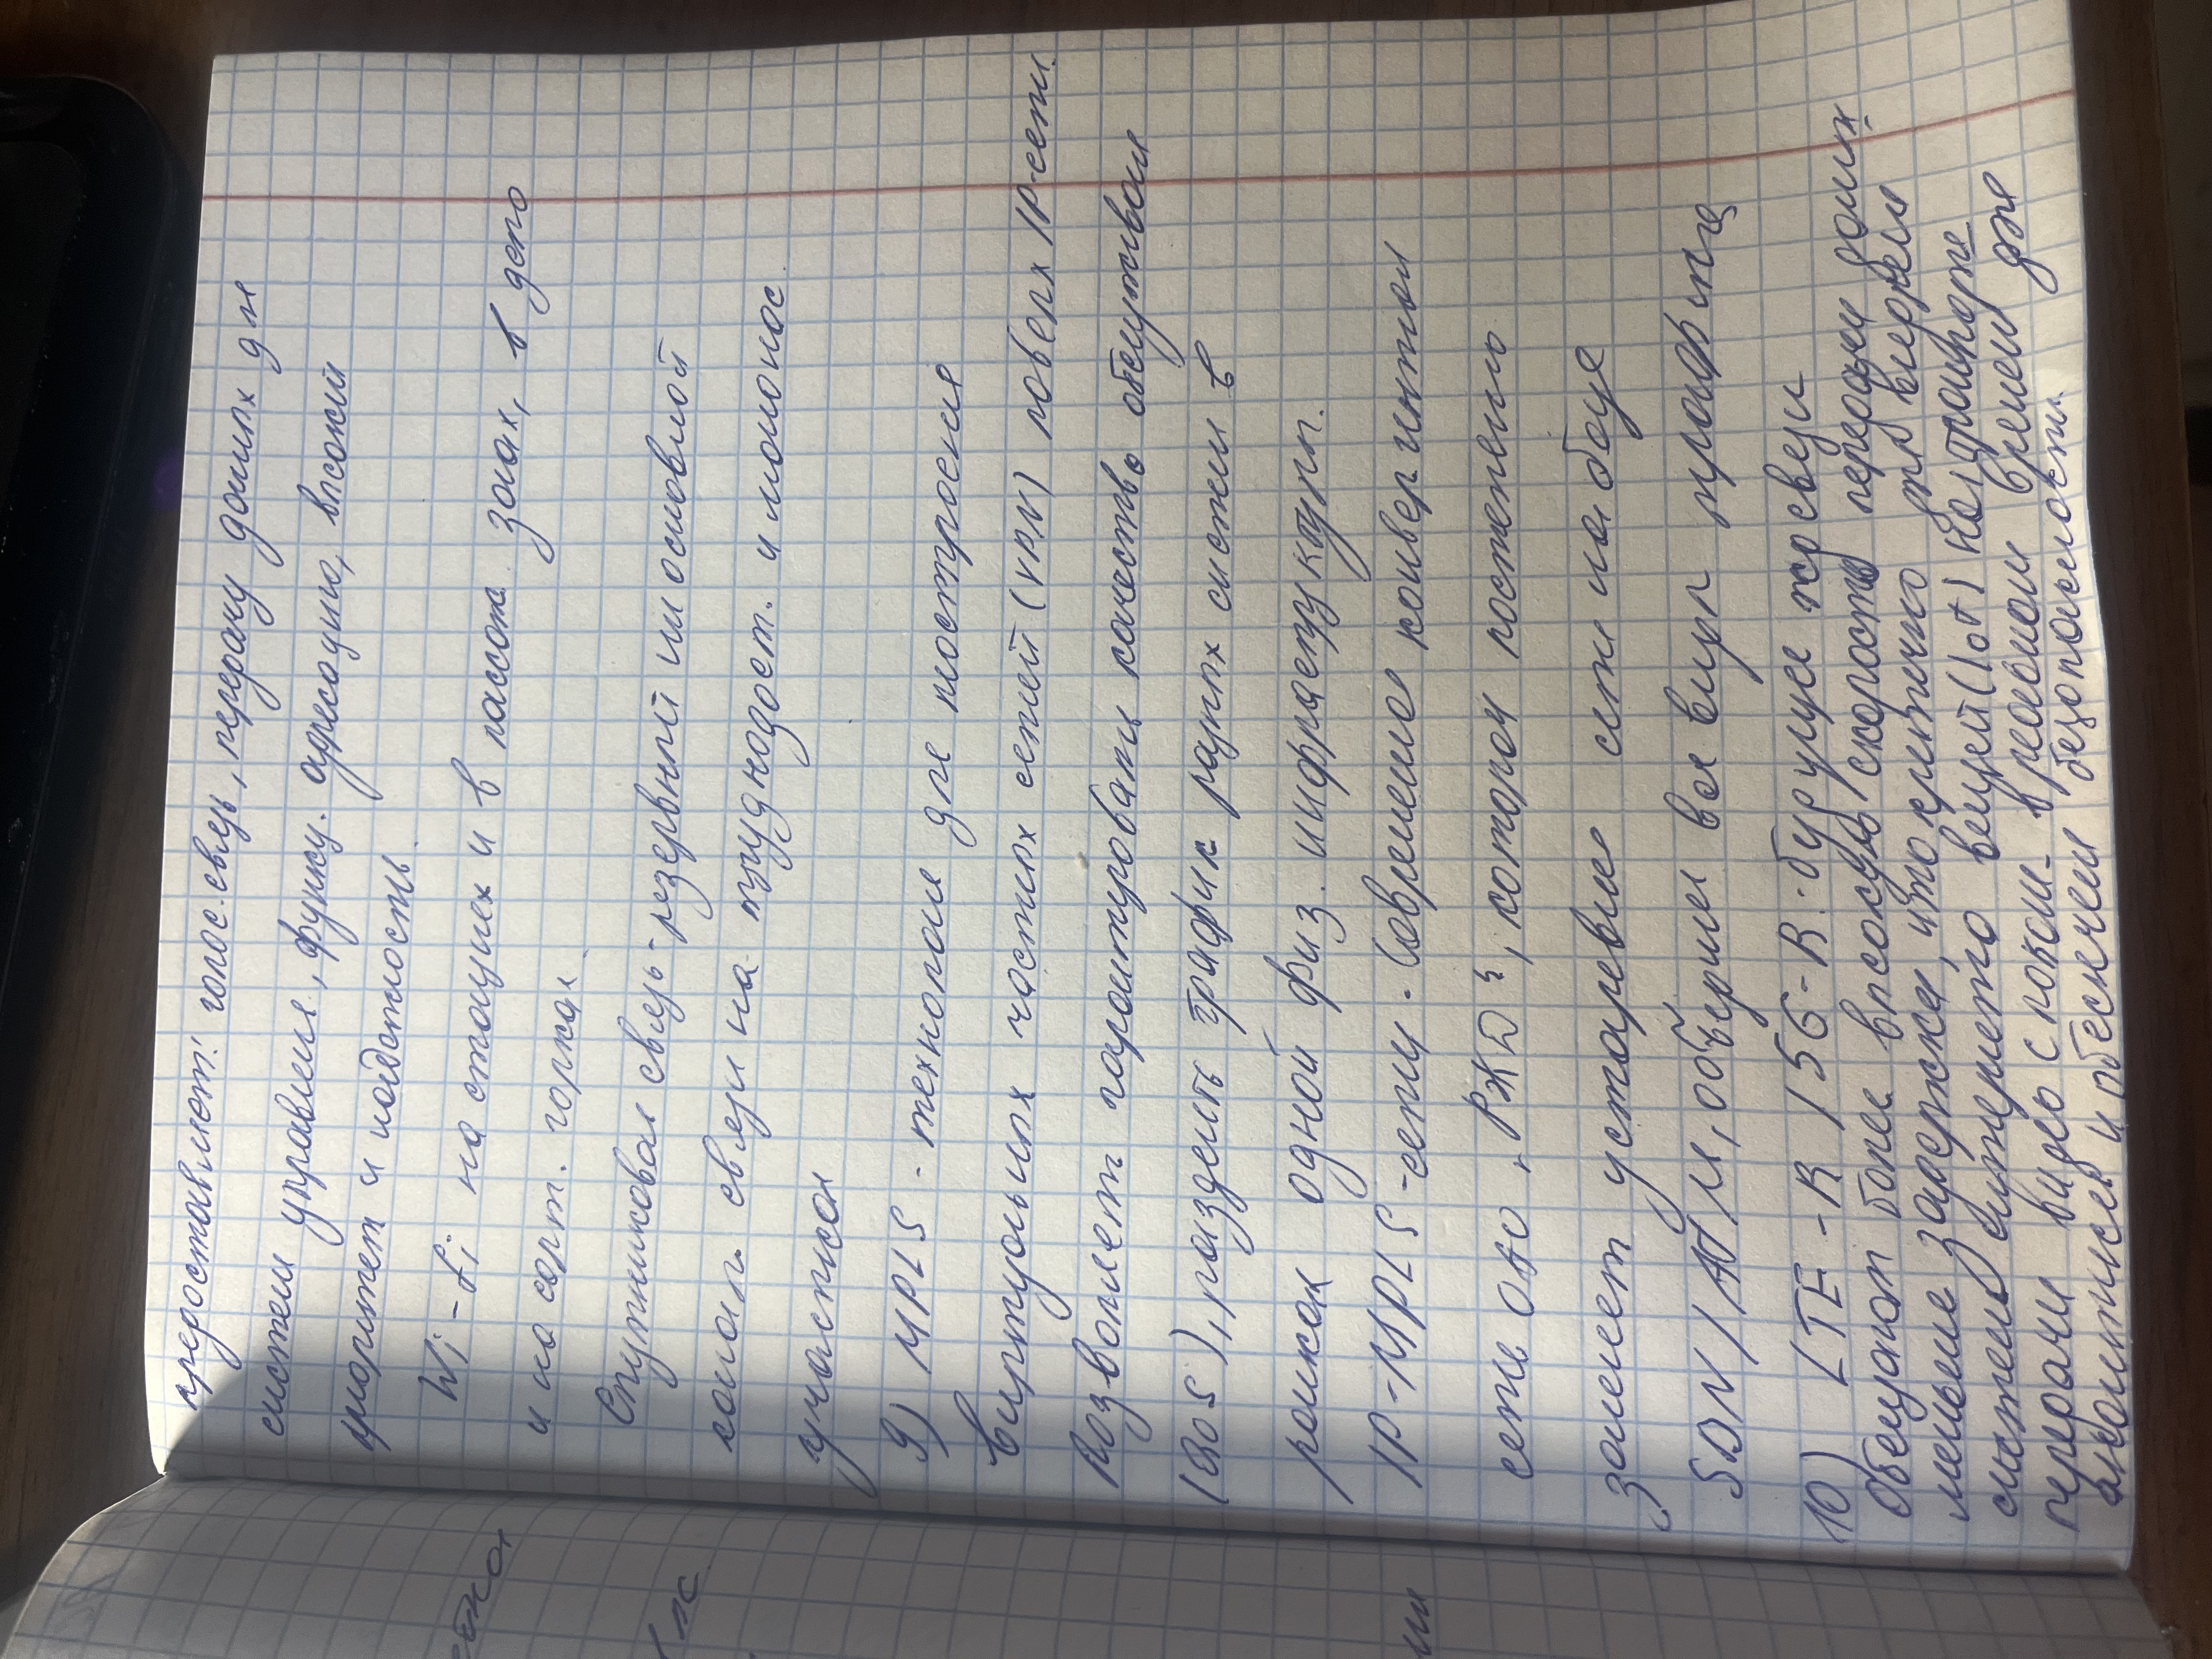 предоставляет: голос. связь, передачу данных для
систем управления, функц. адресацию, высокий
приоритет и надежность.
Wi-fi на станциях и в пассаж. зонах, в депо
и на сорт. горках.
Спутниковая связь - резервный или основной
канал связи на труднодост. и малонас.
участках
9) MPLS - технология для построения
виртуальных частных сетей (VPN) поверх IP-сети
Позволяет гарантировать качество обслуживан
(QoS), разделить трафик разных систем в
рамках одной физ. инфраструктуры.
IP-MPLS-сети. Современная конвергентная
сеть ОАО "РЖД", которая постепенно
заменяет устаревшие сети на базе
SDN / ATM, объединяя все виды трафика
10) LTE-R / 5G-R: будущее жд связи
Обещают более высокую скорость передачи данных
меньшие задержки, что критично для внедрения
систем интернета вещей (IoT) на транспорте
передачи видео с локом. в реальном времени для
аналитики и обеспечения безопасности.
етка
ии